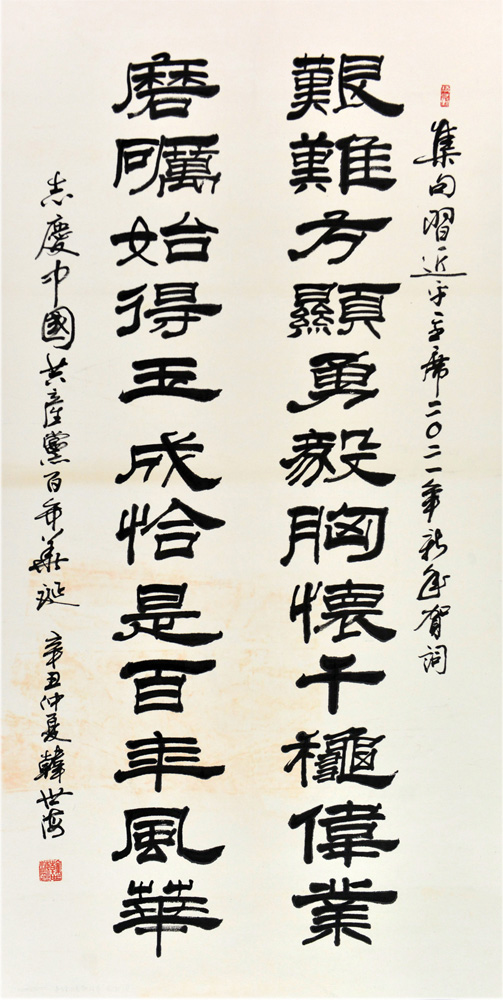 集句習近平主席二〇二一年新年賀詞
艱難方顯勇毅胸懷千龝偉業
磨礪始得玉成恰是百年風華
志慶中國共產黨百年華誕 辛丑仲夏韓世海